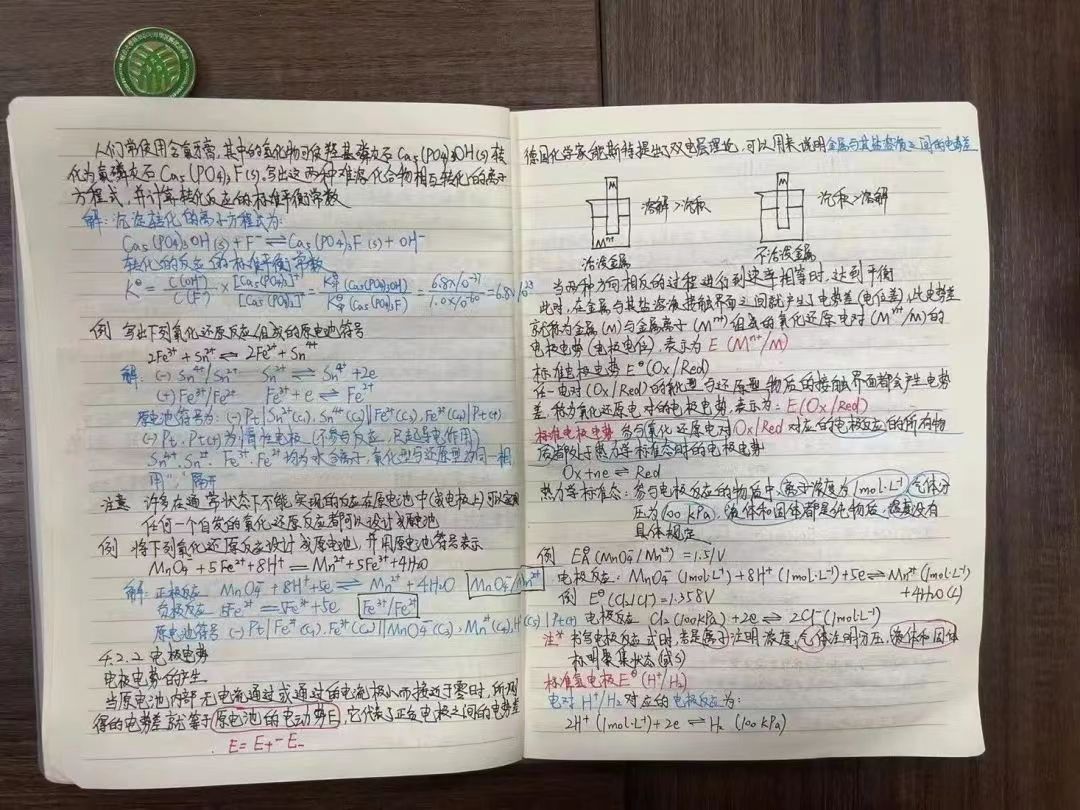 人们常使用含氟牙膏,其中的氟化物可使羟基磷灰石 Ca₅(PO₄)₃OH(s) 转
化为氟磷灰石 Ca₅(PO₄)₃F(s).写出这两种难溶化合物相互转化的离子
方程式,并计算转化反应的标准平衡常数
解:沉淀转化的离子方程式为:
Ca₅(PO₄)₃OH(s)+F⁻⇌Ca₅(PO₄)₃F(s)+OH⁻
转化的反应的标准平衡常数
例 写出下列氧化还原反应组成的原电池符号
2Fe³⁺+Sn²⁺⇌2Fe²⁺+Sn⁴⁺
解:(-) Sn⁴⁺/Sn²⁺ Sn²⁺⇌Sn⁴⁺+2e
(+)Fe³⁺/Fe²⁺ Fe³⁺+e⇌Fe²⁺
原电池符号为:(-)Pt|Sn²⁺(c₁),Sn⁴⁺(c₂)||Fe³⁺(c₃),Fe²⁺(c₄)|Pt(+)
(-)Pt.Pt(+)为惰性电极(不参与反应,只起导电作用)
均为水合离子,氧化型与还原型为同一相
用","隔开
注意 许多在通常状态下不能实现的反应在原电池中(或电极上)可以实现
任何一个自发的氧化还原反应都可以设计成原电池
例 将下列氧化还原反应设计成原电池,并用原电池符号表示
MnO₄⁻+5Fe²⁺+8H⁺=Mn²⁺+5Fe³⁺+4H₂O
解:正极反应 MnO₄⁻+8H⁺+5e⇌Mn²⁺+4H₂O MnO₄⁻/Mn²⁺
负极反应 5Fe²⁺=5Fe³⁺+5e Fe³⁺/Fe²⁺
原电池符号 (-)Pt|Fe²⁺(c₁),Fe³⁺(c₂)||MnO₄⁻(c₃),Mn²⁺(c₄),H⁺(c₅)|Pt(+)
4.2.2 电极电势
电极电势的产生
当原电池内部无电流通过或通过的电流极小而接近于零时,所测
得的电势差就等于原电池的电动势E,它代表了正负电极之间的电势差
E=E₊-E₋
德国化学家能斯特提出了双电层理论,可以用来说明金属与其盐溶液之间的电势差
M M
溶解>沉积 沉积>溶解
Mⁿ⁺
活泼金属 不活泼金属
当两种方向相反的过程进行到速率相等时,达到平衡
此时,在金属与其盐溶液接触界面之间就产生了电势差(电位差),此电势差
就称为金属(M)与金属离子(Mⁿ⁺)组成的氧化还原电对(Mⁿ⁺/M)的
电极电势(电极电位),表示为 E(Mⁿ⁺/M)
标准电极电势 E^θ(Ox/Red)
任一电对(Ox/Red)的氧化型与还原型物质的接触界面都会产生电势
差,称为氧化还原电对的电极电势,表示为:E(Ox/Red)
标准电极电势 参与氧化还原电对Ox/Red对应的电极反应的所有物
质都处于热力学标准态时的电极电势
Ox+ne⇌Red
热力学标准态:参与电极反应的物质中,离子浓度为1mol·L⁻¹,气体分
压为100kPa,液体和固体都是纯物质,温度没有
具体规定
例 E^θ(MnO₄⁻/Mn²⁺)=1.51V
电极反应:MnO₄⁻(1mol·L⁻¹)+8H⁺(1mol·L⁻¹)+5e⇌Mn²⁺(1mol·L⁻¹)
+4H₂O(L)
例 E^θ(Cl₂/Cl⁻)=1.358V
电极反应 Cl₂(100kPa)+2e⇌2Cl⁻(1mol·L⁻¹)
注* 书写电极反应式时,若是离子注明浓度,气体注明分压,液体和固体
标明聚集状态(l或s)
标准氢电极E^θ(H⁺/H₂)
电对H⁺/H₂对应的电极反应为:
2H⁺(1mol·L⁻¹)+2e⇌H₂(100kPa)